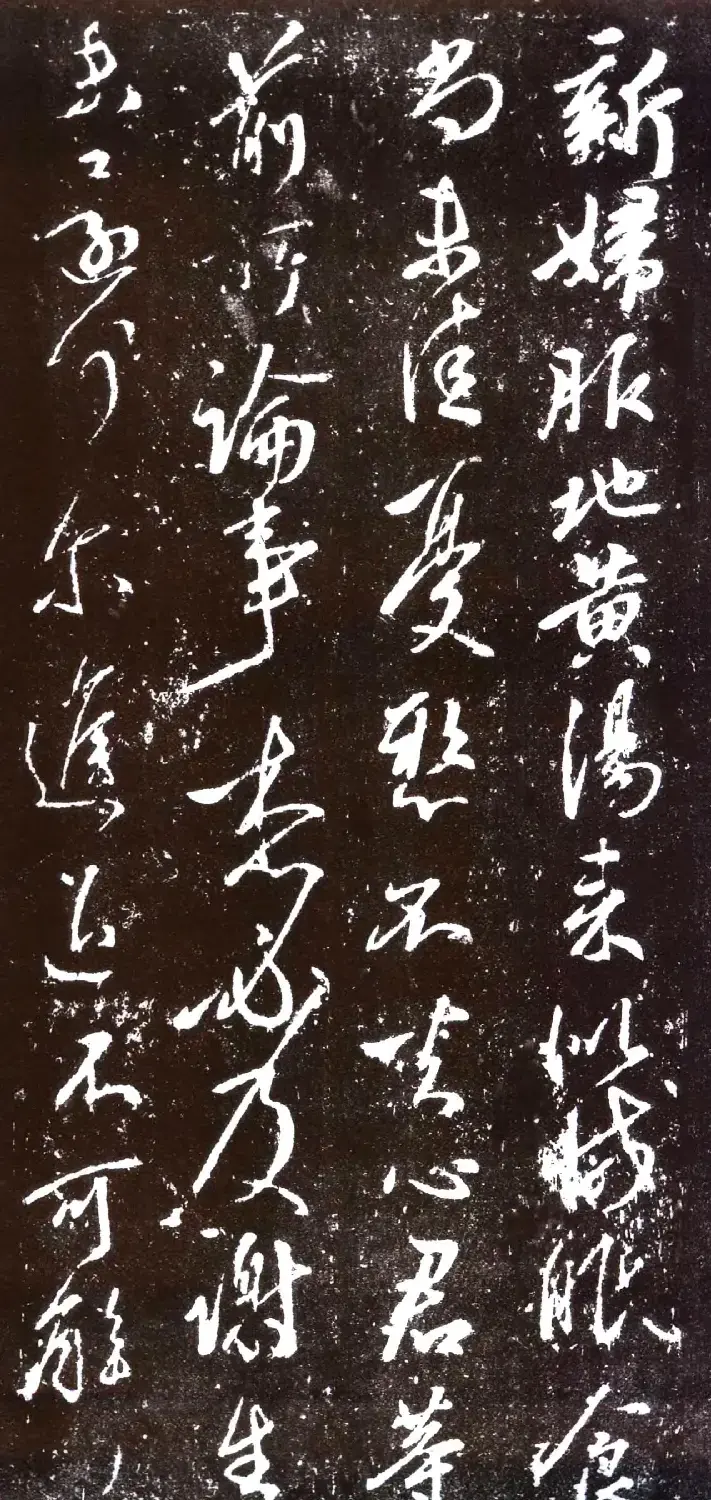 新婦服地黄湯来似減眠食
尚未佳憂懸不去心君等
前所論事想必及謝生
還何尔進退不可解